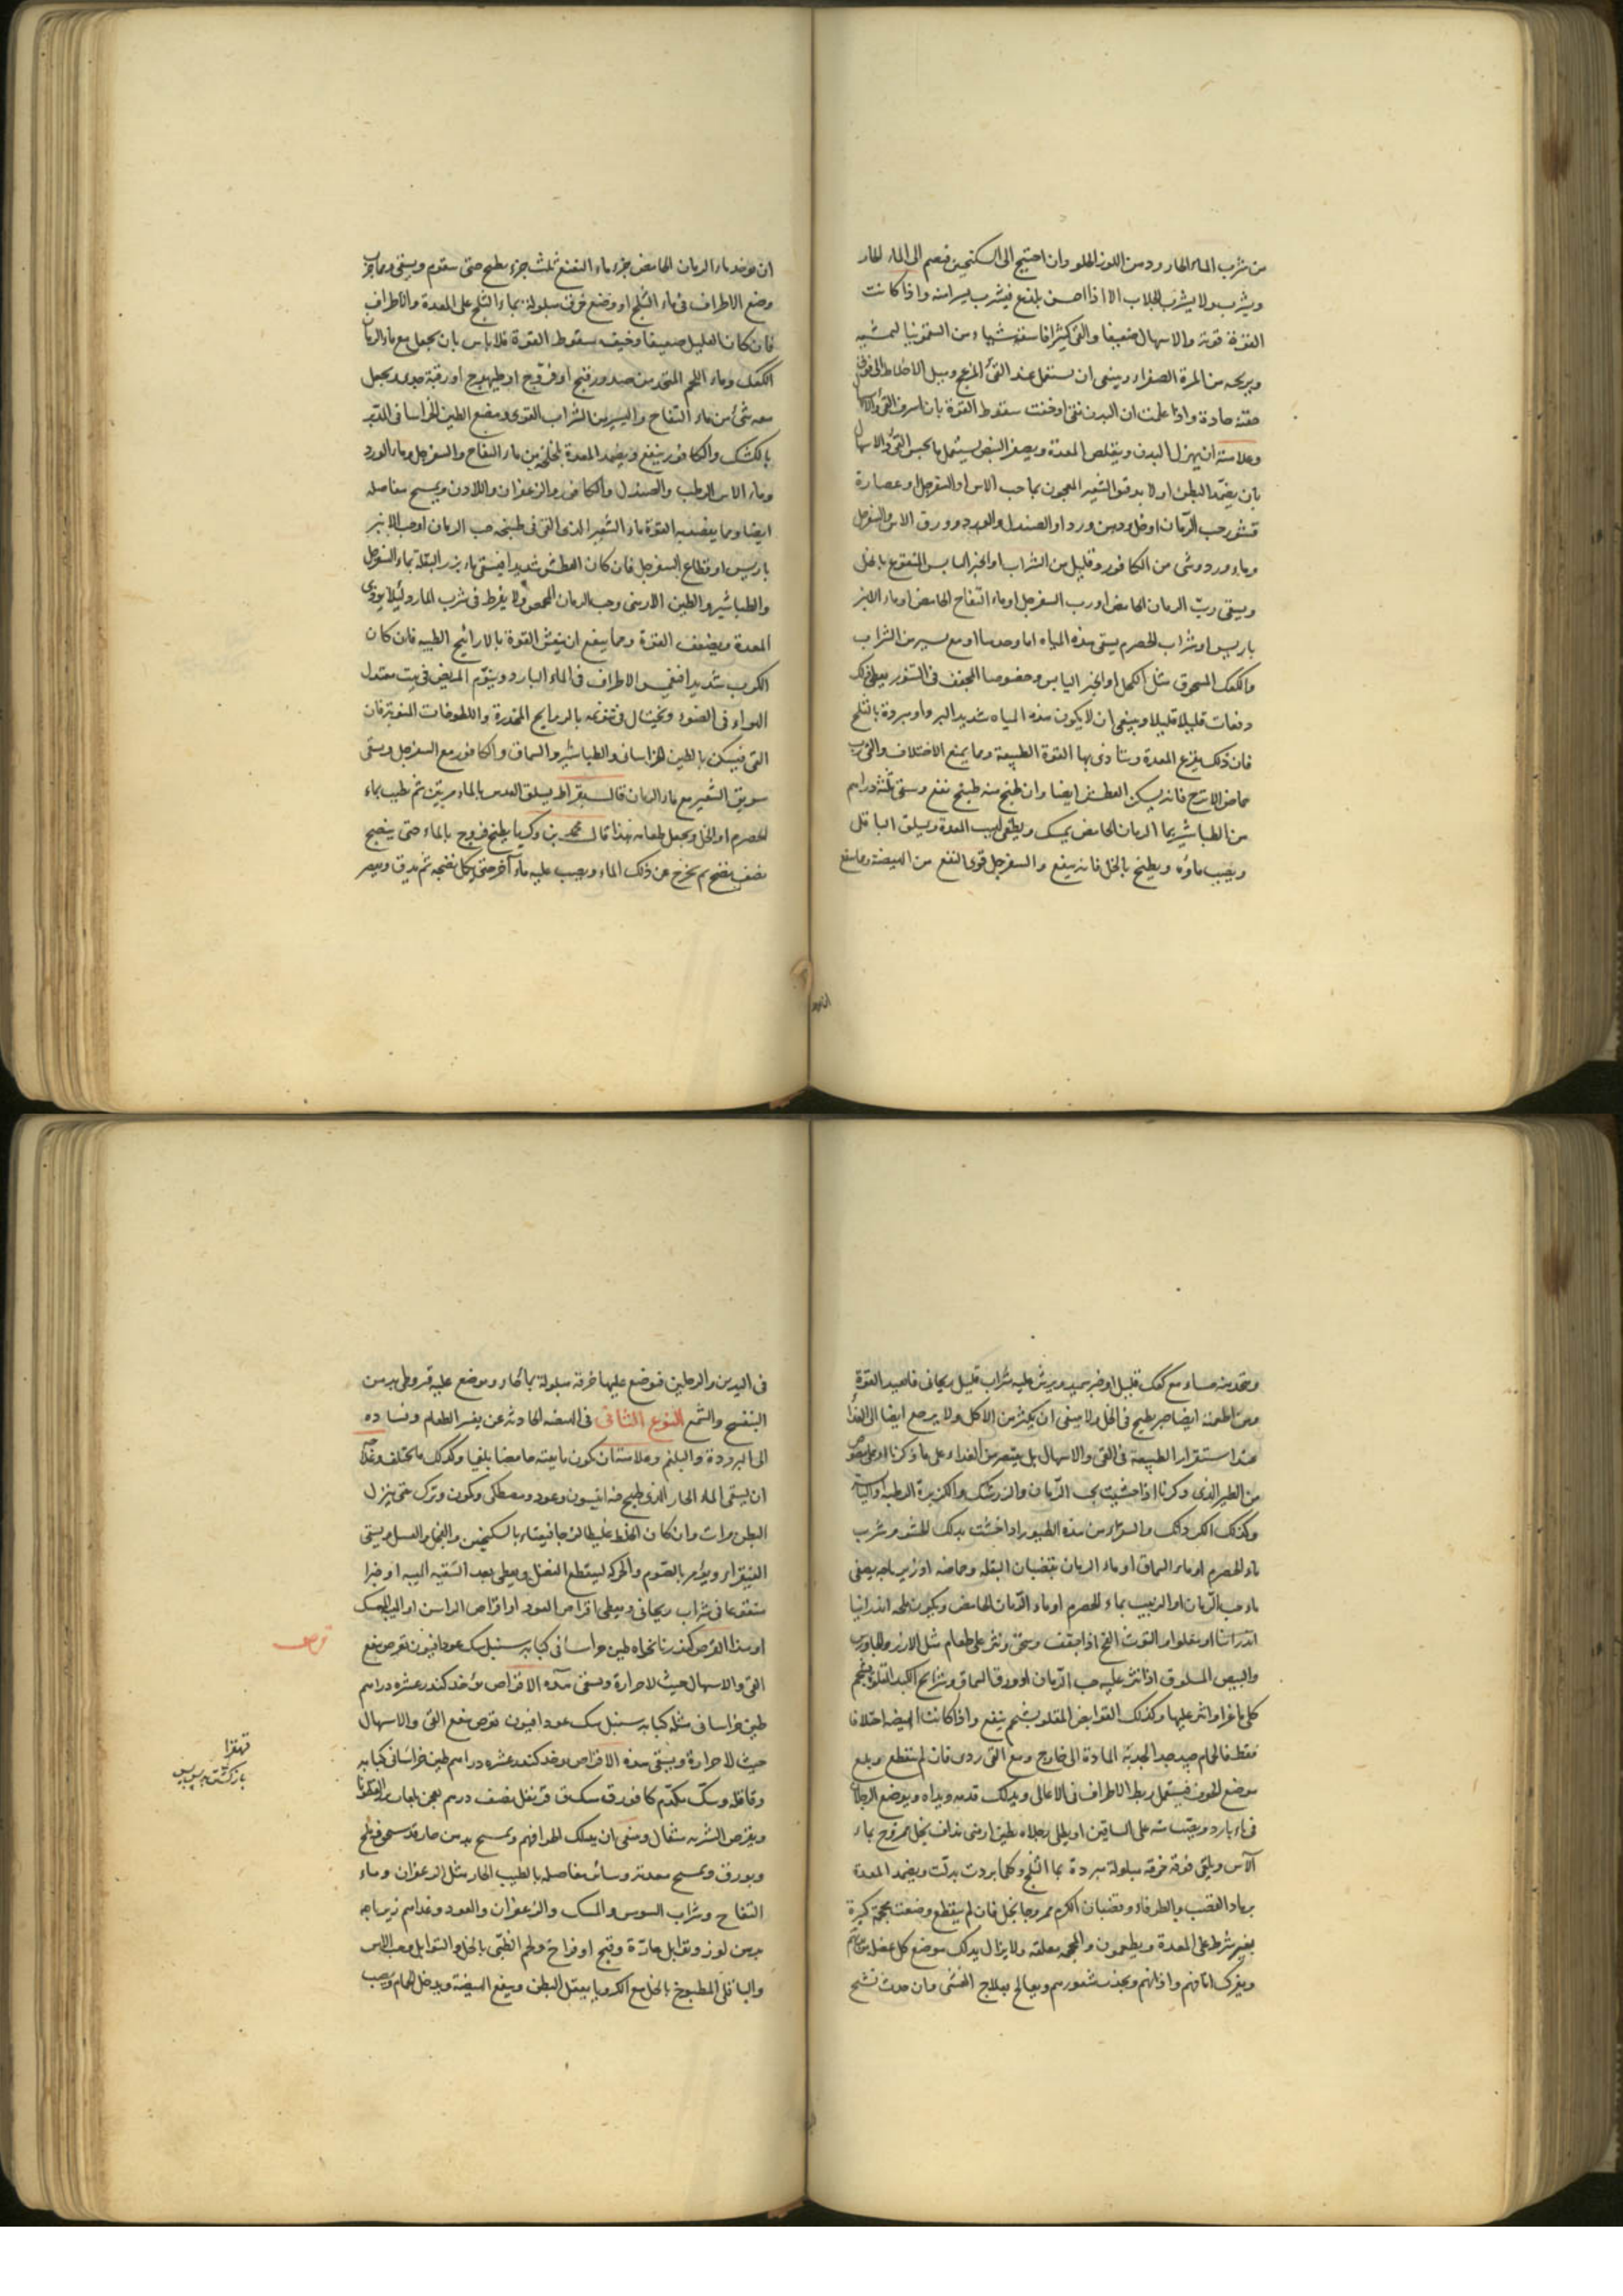 من شرب الماء الحار ودهن اللوز الحلو وان احتيج الى السكنجبين فيضم الى الماء الحار
ويشرب ولا يشرب الجلاب الا اذا احس بلذع فيشرب يسرا منه واذا كانت
القوة قوية والاسهال ضعيفا والقئ كثيرا فاسقه شيئا من السقمونيا ليمشيه
ويريحه من المرة الصفراء وينبغى ان يستعمل عند القئ المزعج وميل الاخلاط الى فوق
حقنة حادة واذا علمت ان البدن نقى او خفت سقوط القوة بان اسرف القئ والاسهال
وعلامته ان يهزل البدن ويتقلص المعدة ويصغر النبض يستعمل ما يحبس القئ والاسهال
بان يضمد البطن اولا بدقيق الشعير المعجون بماء حب الاس او السفرجل وعصارة
قشور حب الرمان او خل ودهن ورد او الصندل والورد وورق الاس والسفرجل
وماء ورد وشئ من الكافور وقليل من الشراب او الخبز اليابس المنقوع بالخل
ويسقى رب الرمان الحامض او رب السفرجل او ماء التفاح الحامض او ماء الانبر
باريس او شراب الحصرم يسقى هذه المياه اما وحدها او مع يسير من الشراب
والكعك المسحوق مثل الكحل او الخبز اليابس وخصوصا المجفف فى التنور يعطى ذلك
دفعات قليلا قليلا وينبغى ان لا يكون هذه المياه شديد البرد او مبردة بالثلج
فان ذلك يقرع المعدة ويتاذى بها القوة الطبيعة ومما يمنع الاختلاف والقئ رب
حماض الاترج فانه يسكن العطش ايضا وان طبخ منه طبيخ نفع ويسقى ثلثة دراهم
من الطباشير بماء الرمان الحامض يمسك ويطفى لهيب المعدة ويسلق الباقلى
ويصب ماؤه ويطبخ بالخل فانه ينفع والسفرجل قوى النفع من الهيضة ومما ينفع
ان يوخذ ماء الرمان الحامض جزء ماء النعنع ثلث جزء يطبخ حتى يتقوم ويسقى ومما جرب
وضع الاطراف فى ماء الثلج او وضع خرق مبلولة بماء الثلج على المعدة والاطراف
فان كان العليل ضعيفا وخيف سقوط القوة فلا باس بان يجعل مع ماء الرمان
الكعك وماء اللحم المتخذ من صدور قبج او فروج او طيهوج او رقبة جدى ويجعل
معه شئ من ماء التفاح واليسير من الشراب القوى ومضغ الطين الخراسانى المدبر
بالكشك والكافور ينفع ويضمد المعدة بلخلخة من ماء التفاح والسفرجل وماء الورد
وماء الاس الرطب والصندل والكافور والزعفران واللادن ويمسح مفاصله
ايضا ومما يعضد به القوة ماء الشعير الذى القى فى طبخه حب الرمان او حب الانبر
باريس او قطاع السفرجل فان كان العطش شديدا فيسقى ماء بزر البقلة بماء السفرجل
والطباشير والطين الارمنى وحب الرمان المحمص ولا يفرط فى شرب الماء ولئلا يوذى
المعدة ويضعف القوة ومما ينفع ان ينعش القوة بالارائيح الطيبه فان كان
الكرب شديدا فتغمس الاطراف فى الماء البارد وينوم المريض فى بيت معتدل
الهواء فى الضوء ويحتال فى تنويمه بالروايح المخدرة واللطوخات المنومة فان
القئ فيسكن بالطين الخراسانى والطباشير والسماق والكافور مع السفرجل ويسقى
سويق الشعير مع ماء الرمان قال بقراط يسلق العدس بالماء مرتين ثم يطيب بماء
الحصرم او الخل ويجعل طعامه هذا قال محمد بن زكريا يطبخ فروج بالماء حتى ينضج
نصف نضج ثم يخرج عن ذلك الماء ويصب عليه ماء آخر حتى يكمل نضجه ثم يدق ويعصر
ان يوخذ
ويتخذ منه حساء مع كعك قليل او خبز سميد ويرش عليه شراب قليل ريحانى فانه يعيد القوة
ومن اطعمته ايضا طبيخ فى الخل ولا ينبغى ان يكثر من الاكل ولا يرجع ايضا الى الغذاء
عند استقرار الطبيعة فى القئ والاسهال بل يقتصر من الغذاء على ما ذكرنا او على مصوص
من الطير الذى ذكرنا اذا حشيت بحب الرمان والزرشك والكزبرة الرطبه واليابسة
وكذلك الكردناك والشواء من هذه الطيور اذا حشيت بذلك الحشو وشرب
ماء الحصرم او ماء السماق او ماء الرمان بقضبان البقله وحماضه او زيرباجه يصفى
ماء حب الرمان او الزبيب بماء الحصرم او ماء الرمان الحامض ويكون ملحه اندرانيا
والبيض المسلوق اذا نثر عليه حب الرمان او ورق السماق وشرائح الكبد المقلوة بشحم
كلى ماعز او نثر عليها وكذلك القوابض المقلوه بشحم ينفع واذا كانت الهيضه اختلافا
فقط فالحمام جيد جدا لجذبه المادة الى خارج ومع القئ ردى فان لم ينقطع وبلغ
موضع الخوف فيستعمل ربط الاطراف فى الاعالى ويدلك قدميه ويداه ويوضع الرجلان
فى ماء بارد ويصب منه على الساقين او يطلى رجلاه بطين ارمنى مذاف بخل ممزوج بماء
الآس ويلقى فوقه خرقه مبلولة مبردة بماء الثلج وكلما بردت بدلت ويضمد المعدة
برماد القصب والطرفاء وقضبان الكرم ممزوجا بخل فان لم ينقطع وضعت محجمة كبيرة
بغير شرط على المعدة ويطعمون والمحجمه معلقه ولا يزال يدلك موضع كل عضل من بدنهم
ويفرك انافهم واذانهم ويجذب شعورهم ويعالج بعلاج الغشى وان حدث تشنج
فى اليدين والرجلين فيوضع عليها خرقه مبلولة بماء حار ويوضع عليه قيروطى بدهن
البنفسج والشمع النوع الثانى فى الهيضه الحادثه عن تغير الطعام وفساده
الى البرودة والبلغم وعلامته ان يكون ما يقيئه حامضا بلغميا وكذلك ما يختلف وعلاجه
ان يسقى الماء الحار الذى طبخ فيه انيسون وعود ومصطكى وكمون وترك حتى ينزل
البطن مرات وان كان الخلط غليظا لزجا فيقياء بالسكنجبين والفجل والعسل ويسقى
الفيقرا ويؤمر بالصوم والحركه لينقطع الفضل ويعطى بعد التنقيه الميبه او خبزا
منقوعا فى شراب ريحانى ويعطى اقراص العود او اقراص الراسن او الميبه الممسك
او هذا القرص كندر نانخواه طين خراسانى كبابه سنبل سك عود افيون يقرص ينفع
قرص
القئ والاسهال حيث لا حرارة ويسقى هذه الاقراص يوخذ كندر عشره دراهم
طين خراسانى مثله كبابه سنبل سك عود افيون يقرص ينفع القئ والاسهال
حيث لا حرارة ويسقى هذه الاقراص يوخذ كندر عشره دراهم طين خراسانى كبابه
ويقرص الشربه مثقال وينبغى ان يدلك اطرافهم ويمسح بدهن حار قد سحق فيه ملح
وبورق ويمسح معدته وسائر مفاصله بالطيب الحار مثل الزعفران وماء
التفاح وشراب السوس والمسك والزعفران والعود وغذاهم زيرباجه
بدهن لوز وتوابل حارة وقبج او فراخ ولحم الظبى بالخل والتوابل وحب الاس
والباقلى المطبوخ بالخل مع الكرويا يعقل البطن وينفع الهيضة ويدخل الحمام ويصب